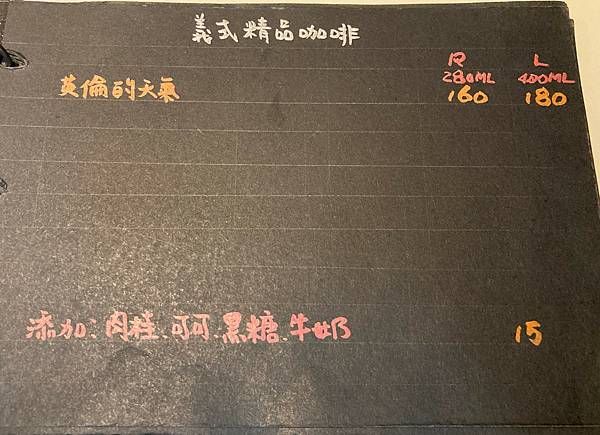 義式精品咖啡
R L
280ML 400ML
英倫的天氣 160 180
添加:肉桂、可可、黑糖、牛奶 15